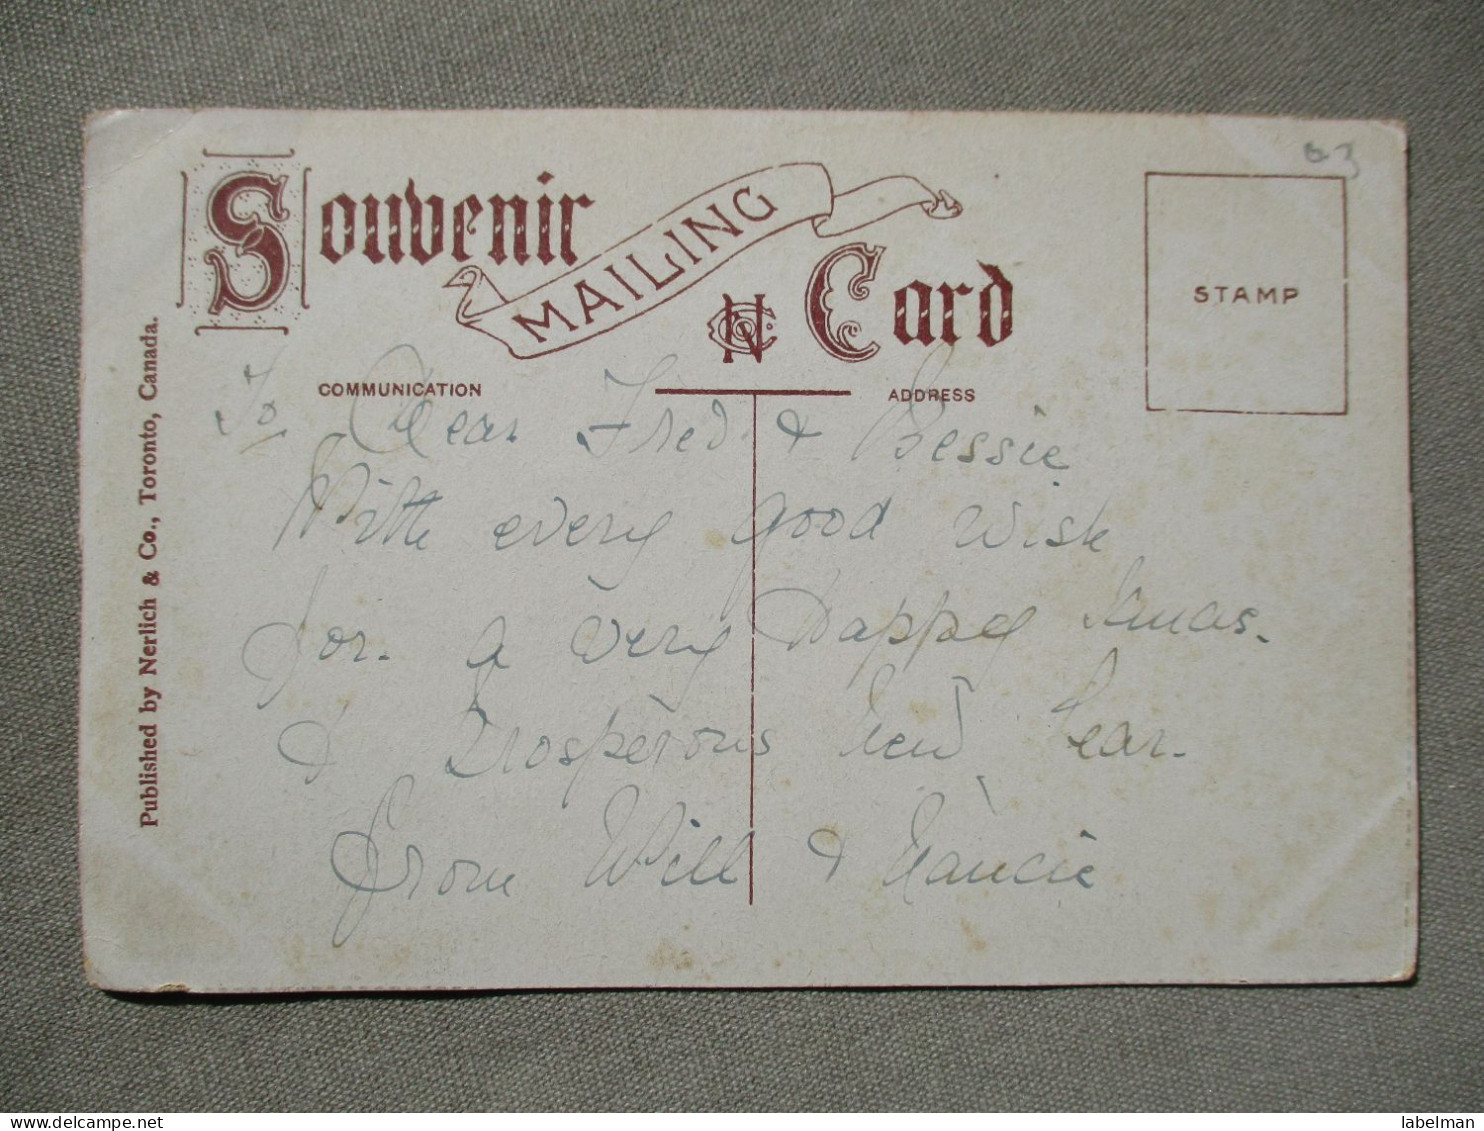 Souvenir
MAILING
Card
STAMP
COMMUNICATION
ADDRESS
Published by Nerlich & Co., Toronto, Canada.
To Dear Fred & Bessie
With every good wish
for a very Happy Xmas.
& Prosperous New Year.
from Will & Nancie
labelman